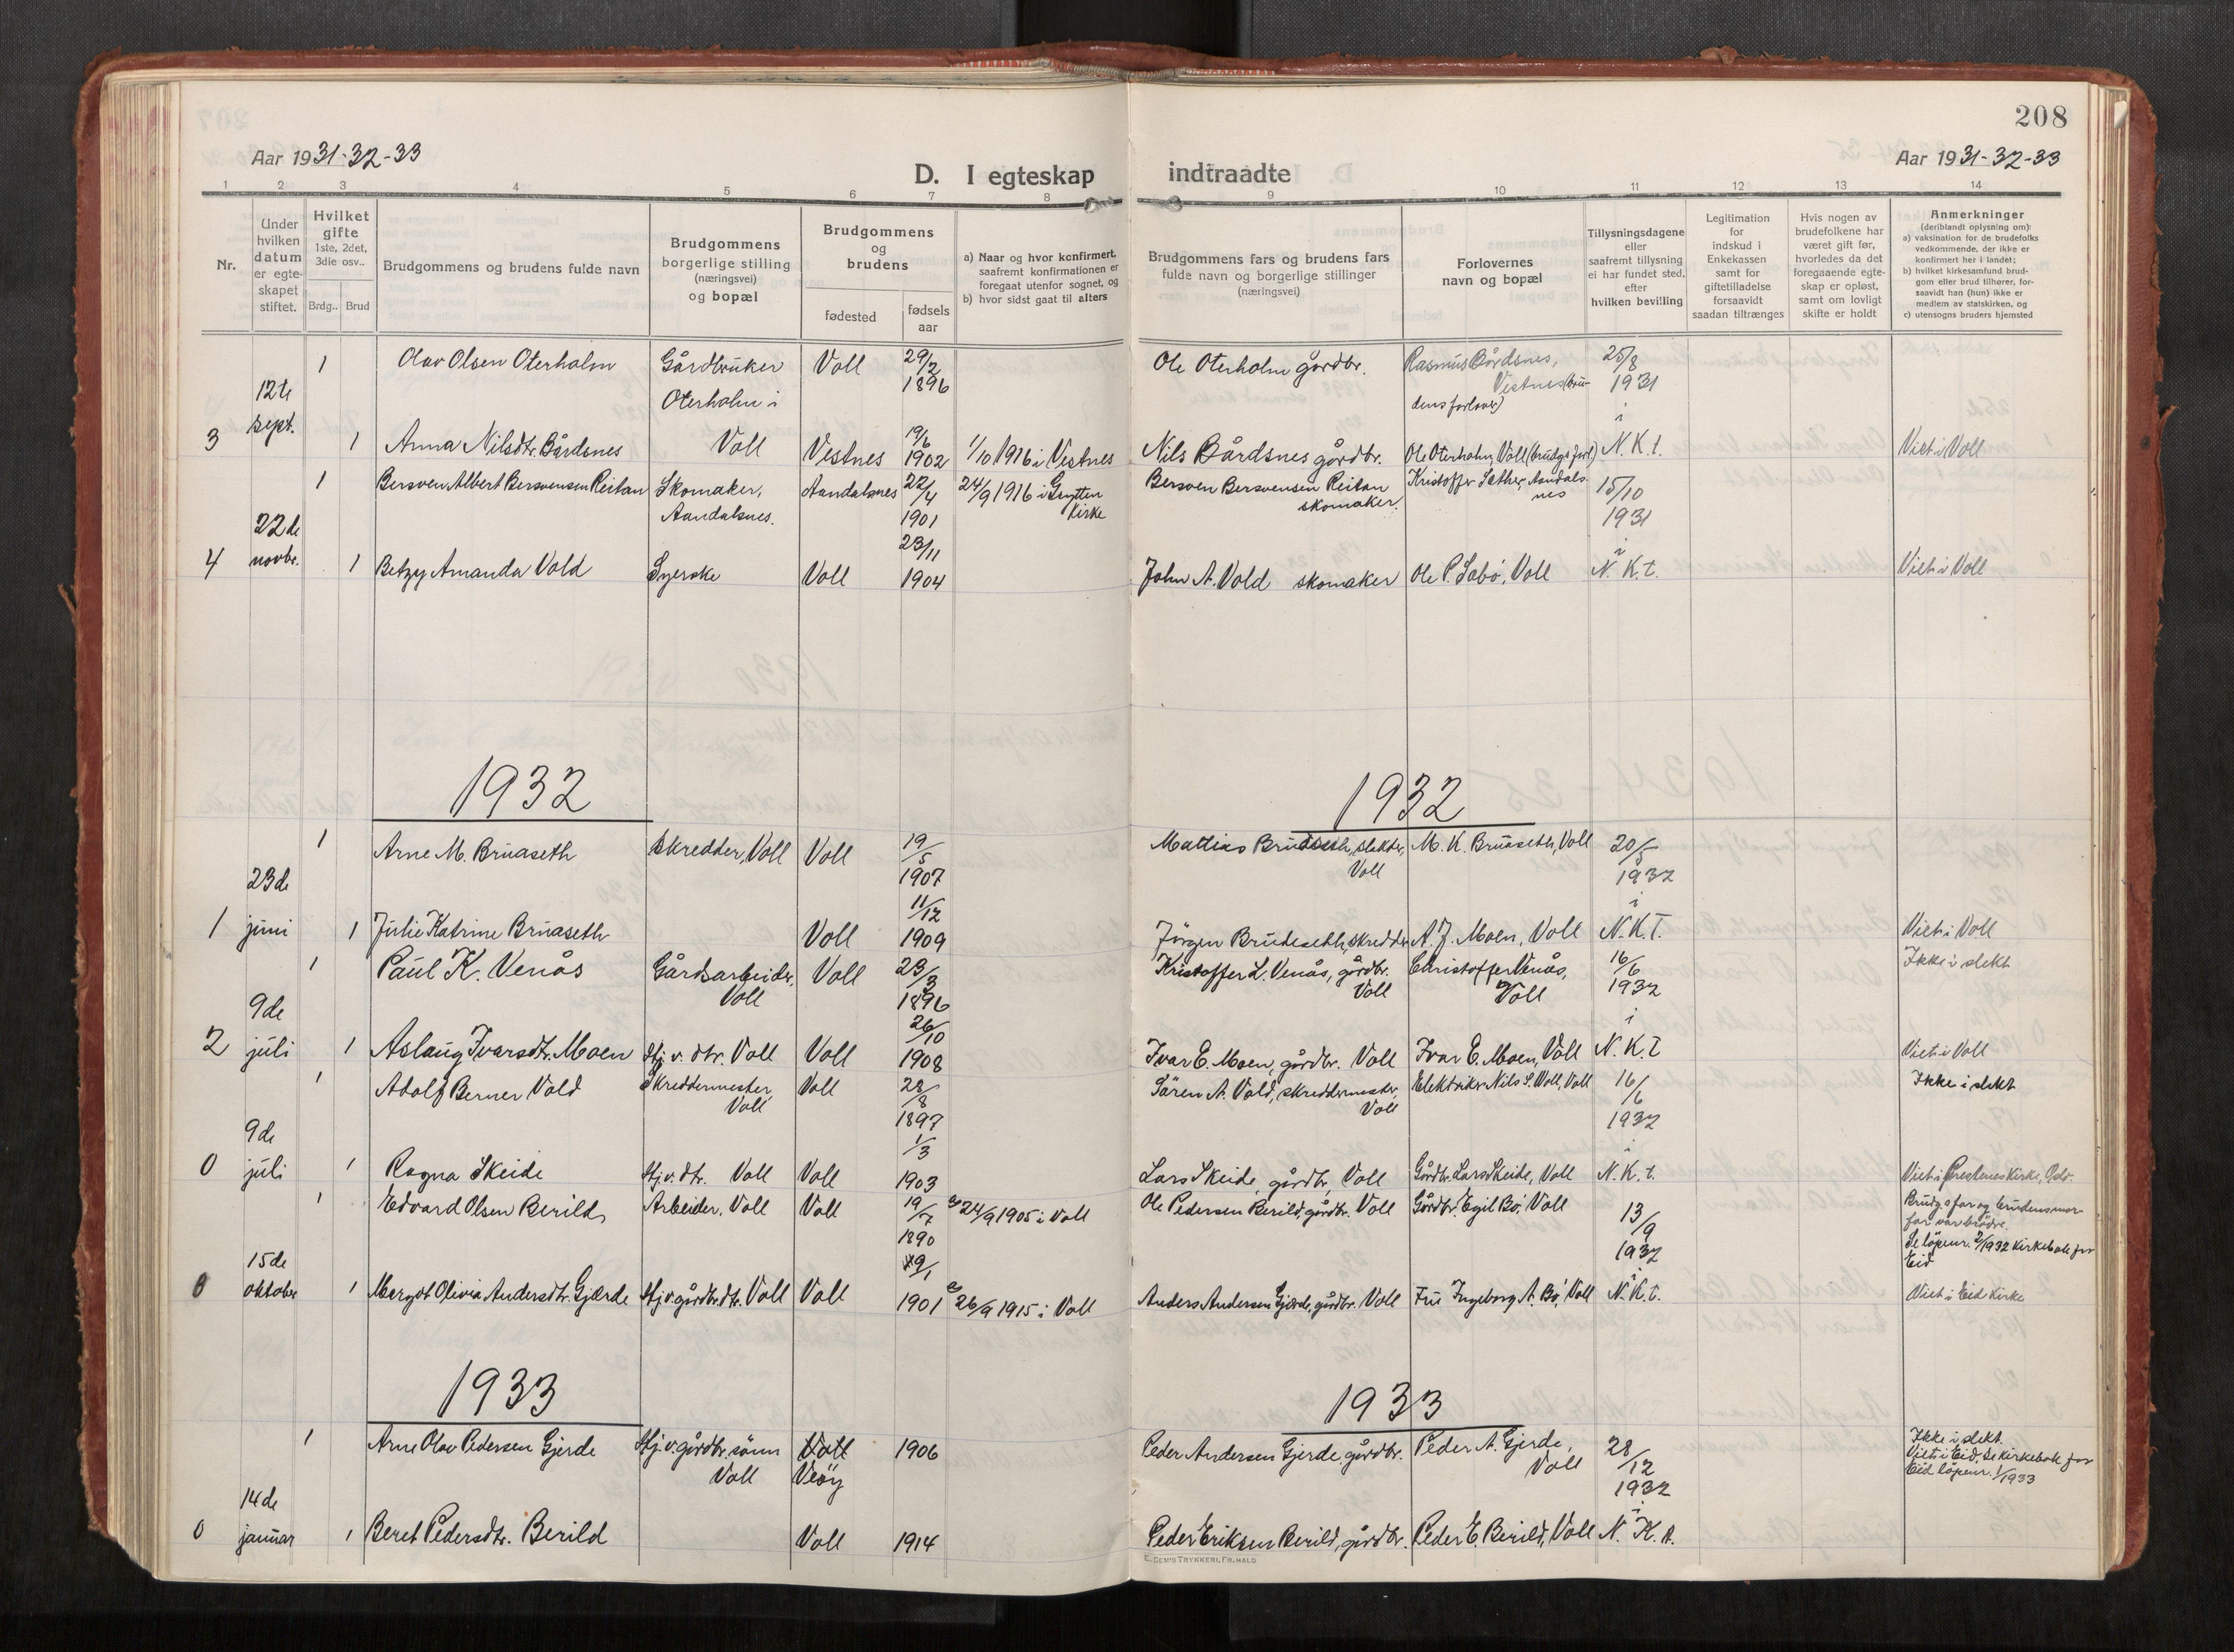 208
Aar 1931-32-33
Aar 1931-32-33
D. I egteskap indtraadte
1 2 3 4 5 6 7 8 9 10 11 12 13 14
Nr.
Under hvilken datum er egteskapet stiftet.
Hvilket gifte
1ste, 2det, 3die osv..
Brdg.. Brud
Brudgommens og brudens fulde navn
Brudgommens borgerlige stilling (næringsvei) og bopæl
Brudgommens og brudens
fødested
fødsels aar
a) Naar og hvor konfirmert, saafremt konfirmationen er foregaat utenfor sognet, og
b) hvor sidst gaat til alters
Brudgommens fars og brudens fars fulde navn og borgerlige stillinger (næringsvei)
Forlovernes navn og bopæl
Tillysningsdagene eller saafremt tillysning ei har fundet sted, efter hvilken bevilling
Legitimation for indskud i Enkekassen samt for giftetilladelse forsaavidt saadan tiltrænges
Hvis nogen av brudefolkene har været gift før, hvorledes da det foregaaende egteskap er opløst, samt om lovligt skifte er holdt
Anmerkninger
(deriblandt oplysning om):
a) vaksination for de brudefolks vedkommende, der ikke er konfirmert her i landet;
b) hvilket kirkesamfund brudgom eller brud tilhører, forsaavidt han (hun) ikke er medlem av statskirken, og
c) utensogns bruders hjemsted
1 Olav Olsen Oterholm Gårdbruker Oterholm i Voll Voll 29/2 1896 Ole Oterholm gårdbr. Rasmus Bårdsnes, Vestnes (brudens forlover) 25/8 1931 i N.K.t.
3 12te sept. 1 Anna Nilsdtr. Bårdsnes Vestnes 19/6 1902 1/10 1916 i Vestnes Nils Bårdsnes gårdbr. Ole Oterholm, Voll (brudgs forl) Viet i Voll
1 Bersven Albert Bersvensen Reitan Skomaker, Aandalsnes. Aandalsnes 22/4 1901 24/9 1916 i Grytten Kirke Bersven Bersvensen Reitan skomaker. Kristoffer Sæther, Aandalsnes 15/10 1931 i N.K.t.
4 22de novbr. 1 Betzy Amanda Vold Syerske Voll 23/11 1904 John A. Vold skomaker Ole P. Sæbø, Voll Viet i Voll
1932
1932
1 Arne M. Bruaseth Skredder, Voll Voll 19/5 1907 Mattias Bruaseth, slakter, Voll M. K. Bruaseth, Voll 20/5 1932 i N.K.T.
1 23de juni 1 Julie Katrine Bruaseth Voll 11/12 1909 Jörgen Brudeseth, skredder A. J. Moen, Voll Viet i Voll
1 Paul K. Venås Gårdsarbeider, Voll Voll 23/3 1896 Kristoffer L. Venås, gårdbr. Voll Christoffer Venås, Voll 16/6 1932 i N.K.T Ikke i slekt
2 9de juli 1 Aslaug Ivarsdtr. Moen Hj.v. dtr. Voll Voll 26/10 1908 Ivar E. Moen, gårdbr. Voll Ivar E. Moen, Voll Viet i Voll
1 Adolf Berner Vold Skreddermester, Voll Voll 28/8 1897 Sören A. Vold, skreddermester, Voll Elektriker Nils S. Voll, Voll 16/6 1932 i N.K.t. Ikke i slekt
0 9de juli 1 Ragna Skeide Hj.v.dtr. Voll Voll 1/3 1903 Lars Skeide, gårdbr, Voll Gårdbr. Lars Skeide, Voll Viet i Prestenes Kirke, Oslo.
1 Edvard Olsen Berild Arbeider, Voll Voll 19/7 1890 a) 24/9 1905 i Voll Ole Pedersen Berild, gårdbr. Voll Gårdbr. Egil Bø, Voll 13/9 1932 i N.K.t. Brudg.s far og brudens morfar var brødre. Se löpenr. 2/1932 Kirkebok for Eid
0 15de oktober 1 Margot Olivia Andersdtr. Gjærde Hj.v. gårdbr.dtr. Voll Voll 29/1 1901 a) 26/9 1915 i Voll Anders Andersen Gjærde, gårdbr. Voll Fru Ingeborg A. Bø, Voll Viet i Eid Kirke
1933
1933
1 Arne Olav Pedersen Gjerde Hj.v. gårdbr. sönn Voll Voll Veöy 1906 Peder Andersen Gjerde, gårdbr. Peder A. Gjerde, Voll 28/12 1932 i N.K.t. Ikke i slekt. Viet i Eid. Se kirkebok for Eid löpenr. 1/1933
0 14de januar 1 Beret Pedersdtr. Berild Voll 1914 Peder Eriksen Berild, gårdbr. Peder E. Berild, Voll
E. DEM'S TRYKKERI, FR.HALD